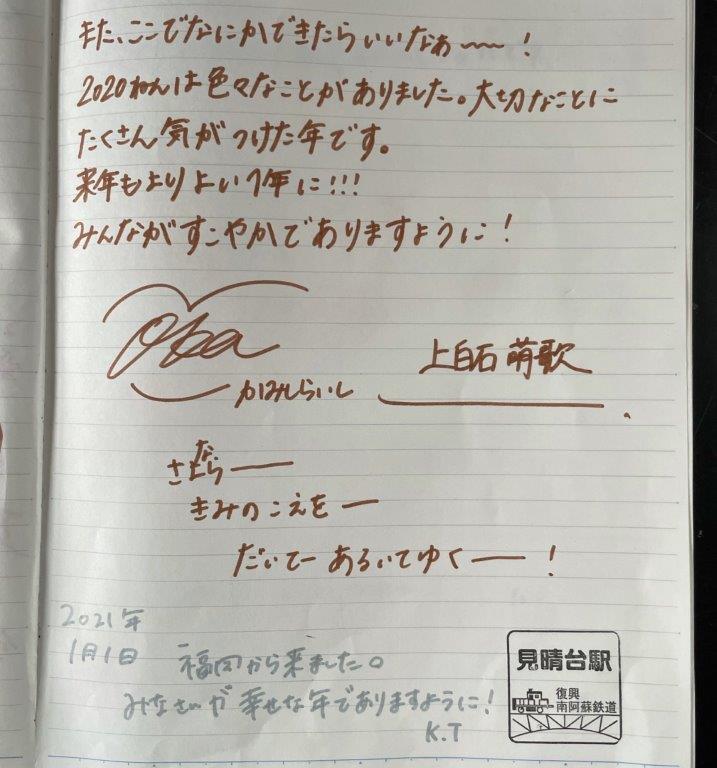 また、ここでなにかできたらいいなぁ〜〜！
2020ねんは色々なことがありました。大切なことに
たくさん気がつけた年です。
来年もよりよい1年に!!!
みんながすこやかでありますように！
かみしらいし
上白石 萌歌
さよなら――
きみのこえを―
だいてー あるいてゆく――！
2021年
1月1日 福岡から来ました。
みなさんが幸せな年でありますように！
K.T
見晴台駅
復興
南阿蘇鉄道